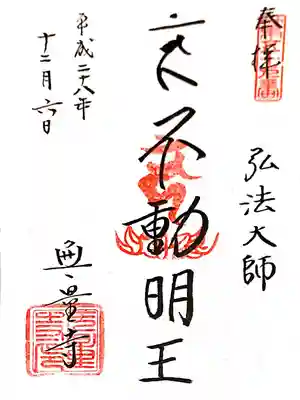 奉拝
弘法大師
不動明王
平成二八年
十二月六日
無量寺